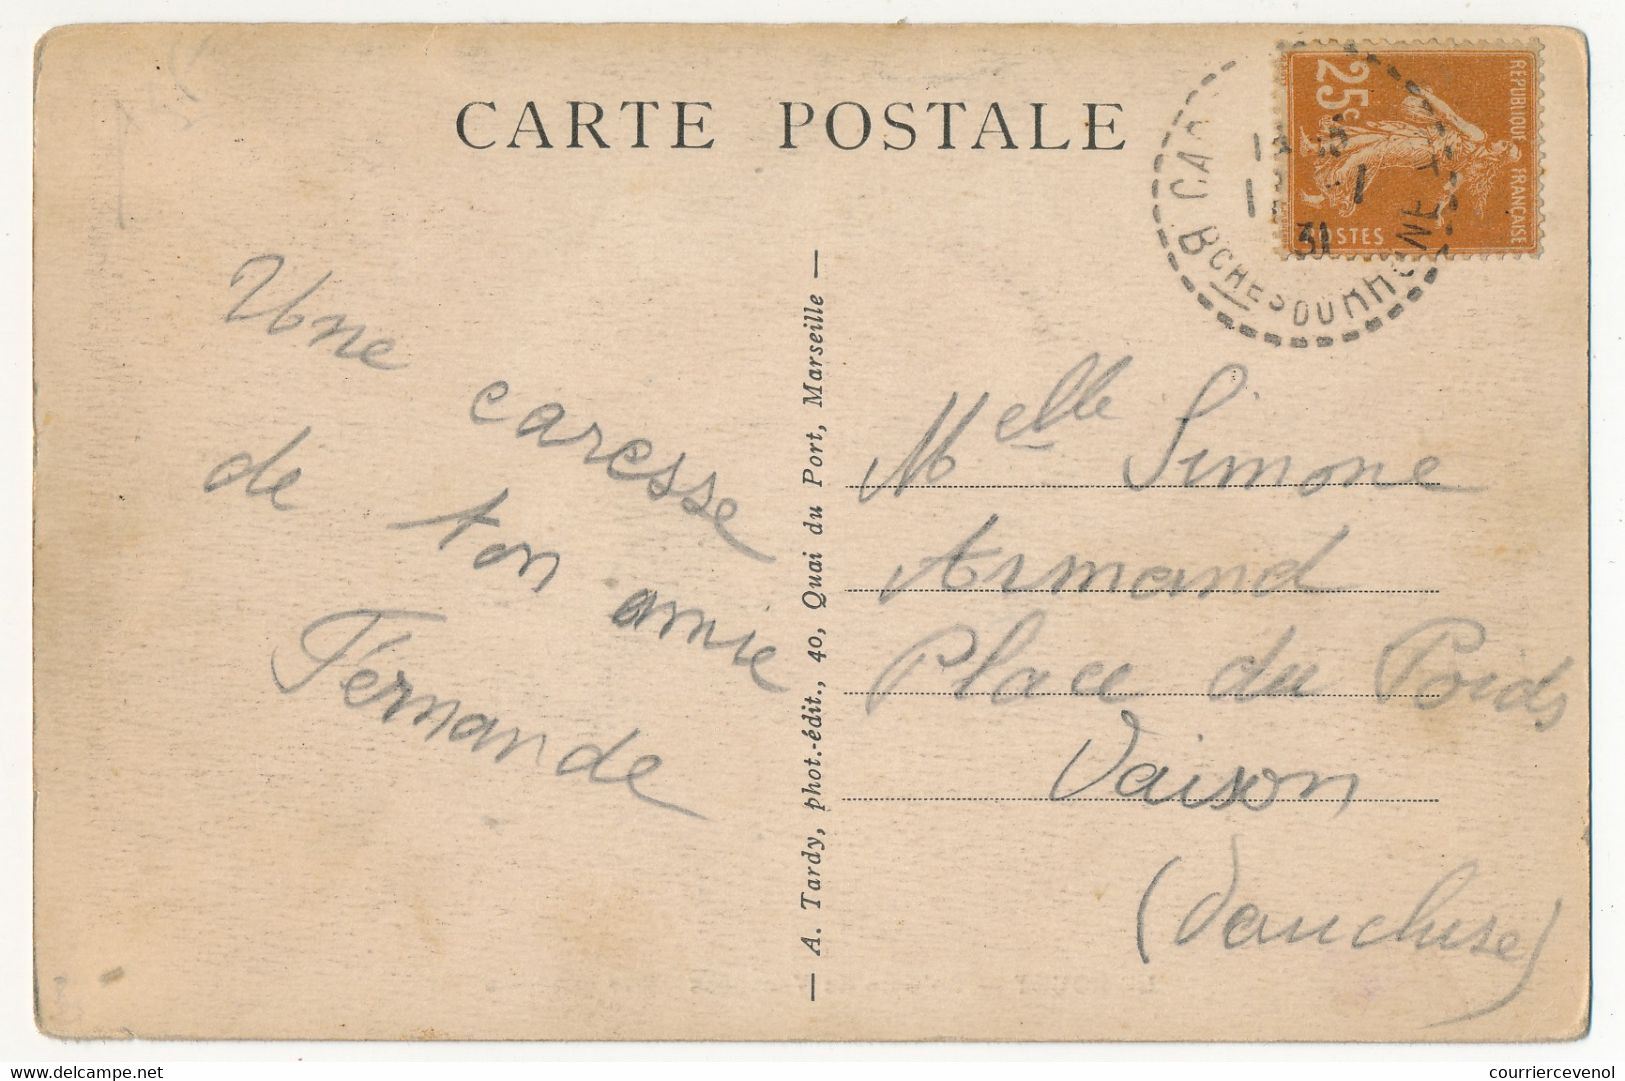 CARTE POSTALE
REPUBLIQUE FRANÇAISE
25c
POSTES
31
BCHES DU RHONE
Une caresse
de ton amie
Fernande
— A. Tardy, phot.-édit., 40, Quai du Port, Marseille —
Melle Simone
Armand
Place du Poids
Vaison
(Vaucluse)
delcampe.net
courriercevenol